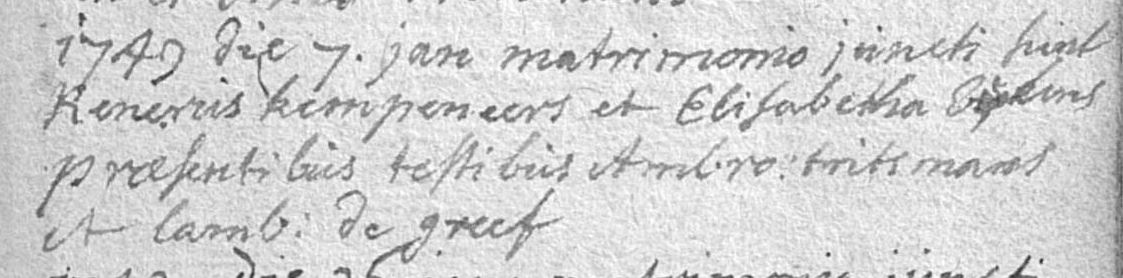 1749 die 7. jan matrimonio juncti sunt
Renerus kempeneers et Elisabetha
præsentibus testibus Ambro: tritsmans
et lamb: de greef